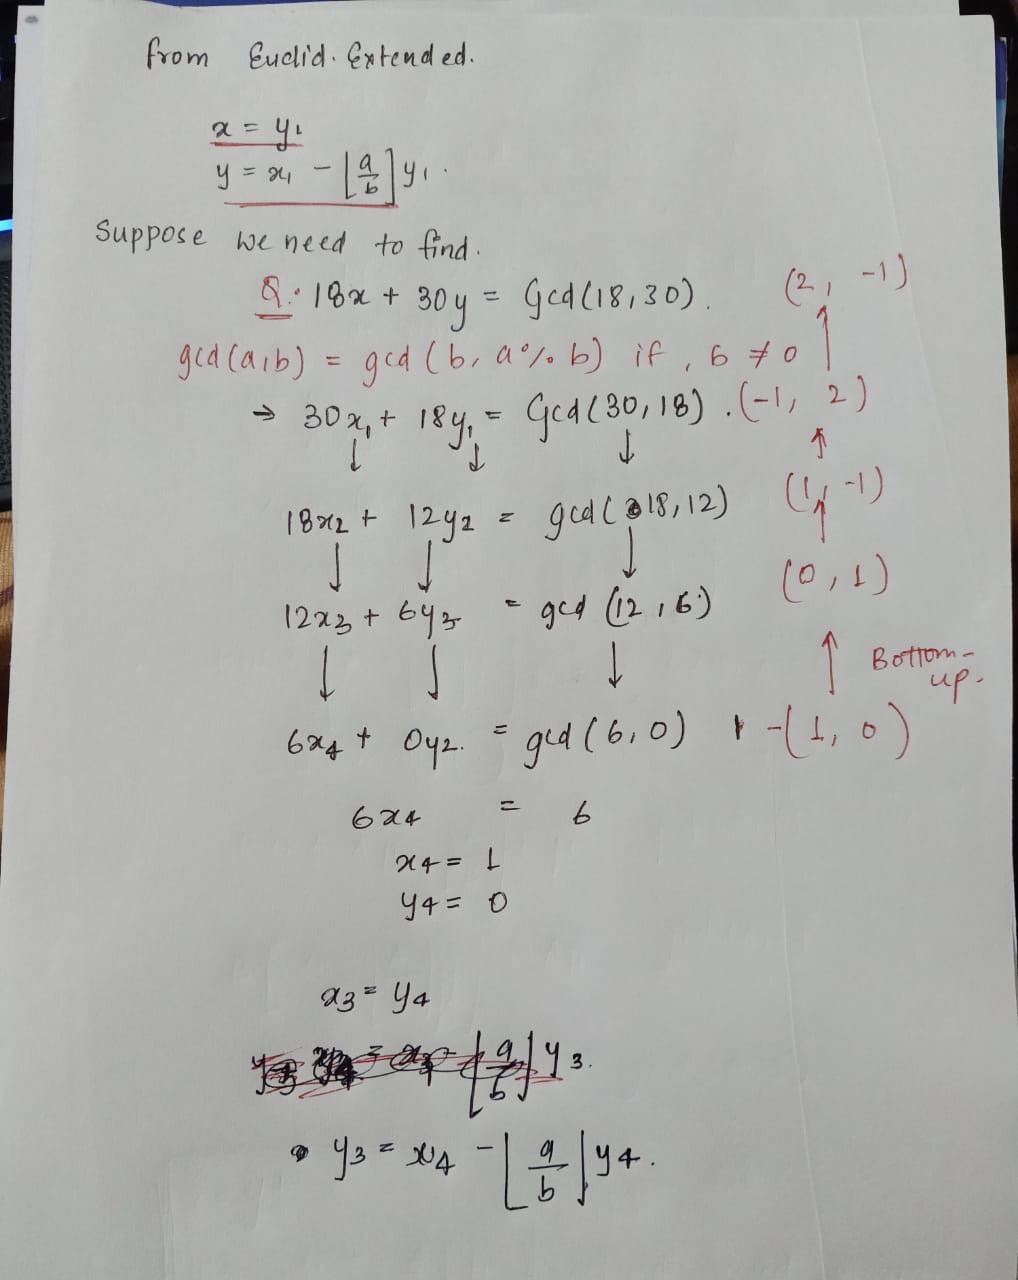 from Euclid. Extended.
x = y₁
y = x₁ - ⌊a/b⌋ y₁.
Suppose we need to find.
Q. 18x + 30y = Gcd(18,30). (2, -1)
gcd(a,b) = gcd(b, a%b) if, b ≠ 0
→ 30x₁ + 18y₁ = Gcd(30,18). (-1, 2)
↓ ↓ ↓ ↑
18x₂ + 12y₂ = gcd(18,12) (1, -1)
↓ ↓ ↓ ↑
12x₃ + 6y₃ = gcd(12,6) (0, 1)
↓ ↓ ↓ ↑ Bottom-up.
6x₄ + 0y₂. = gcd(6,0) -(1, 0)
6x₄ = 6
x₄ = 1
y₄ = 0
x₃ = y₄
⌊a/b⌋ y₃.
y₃ = x₄ - ⌊a/b⌋ y₄.